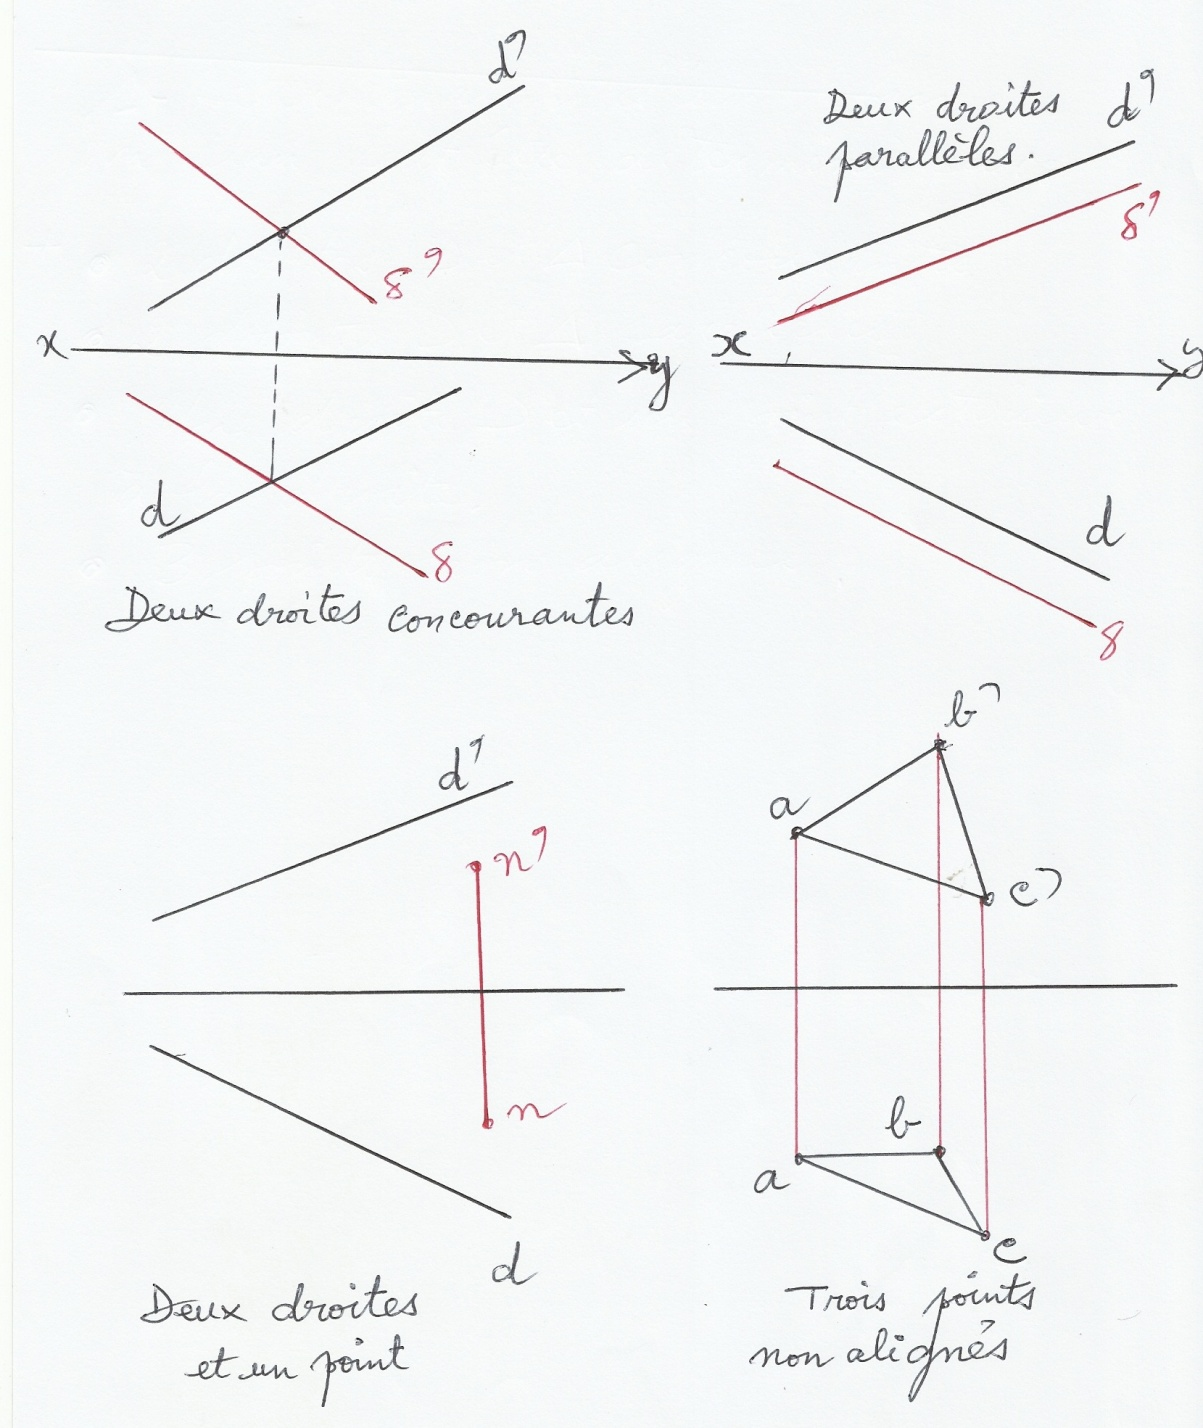 d'
δ'
x
y
d
δ
Deux droites concourantes
Deux droites
parallèles.
d'
δ'
x
y
d
δ
d'
n'
n
d
Deux droites
et un point
b'
a
c'
b
a
c
Trois points
non alignés